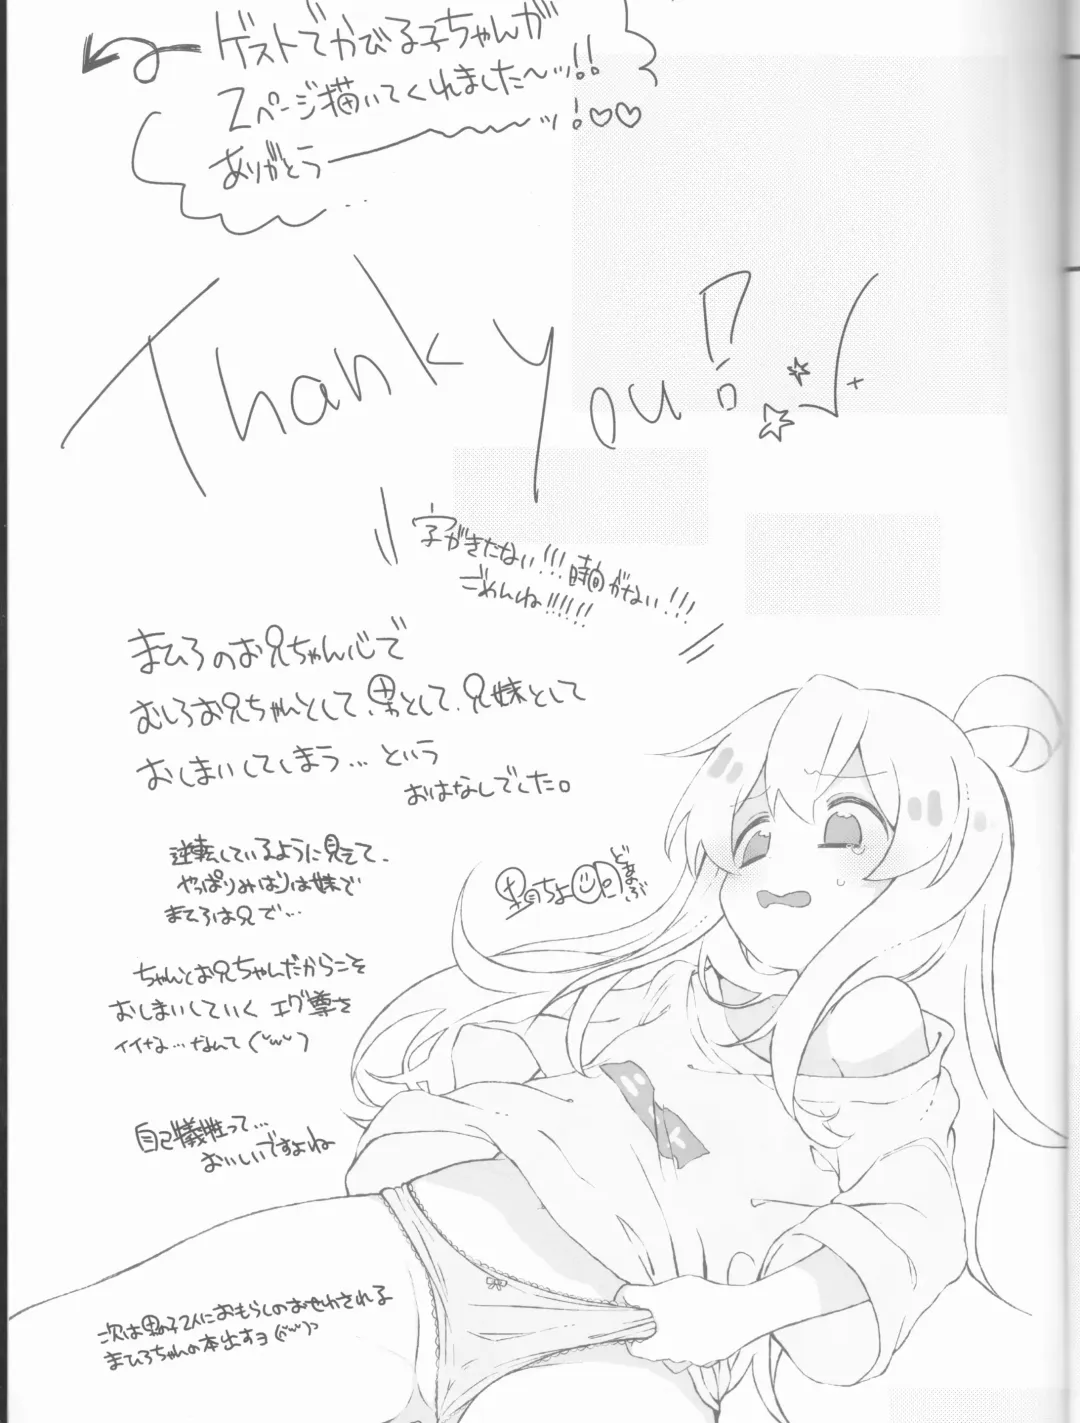 ゲストでかびる子ちゃんが
2ページ描いてくれました〜ッ!!
ありがとうーーッ!♡♡
Thank you!
字がきたない!!!時間がない!!!
ごめんね!!!!!!
まひろのお兄ちゃん心で
むしろお兄ちゃんとして、男として、兄妹として
おしまいしてしまう…という
おはなしでした。
逆転しているように見えて、
やっぱりみはりは妹で
まひろは兄で…
どまぶ
ちゃんとお兄ちゃんだからこそ
おしまいしていく エグ尊を
イイな…なんて(˘ω˘)
自己犠牲って…
おいしいですよね
次は男の子2人におもらしのお世わされる
まひろちゃんの本出すヨ(˘ω˘)